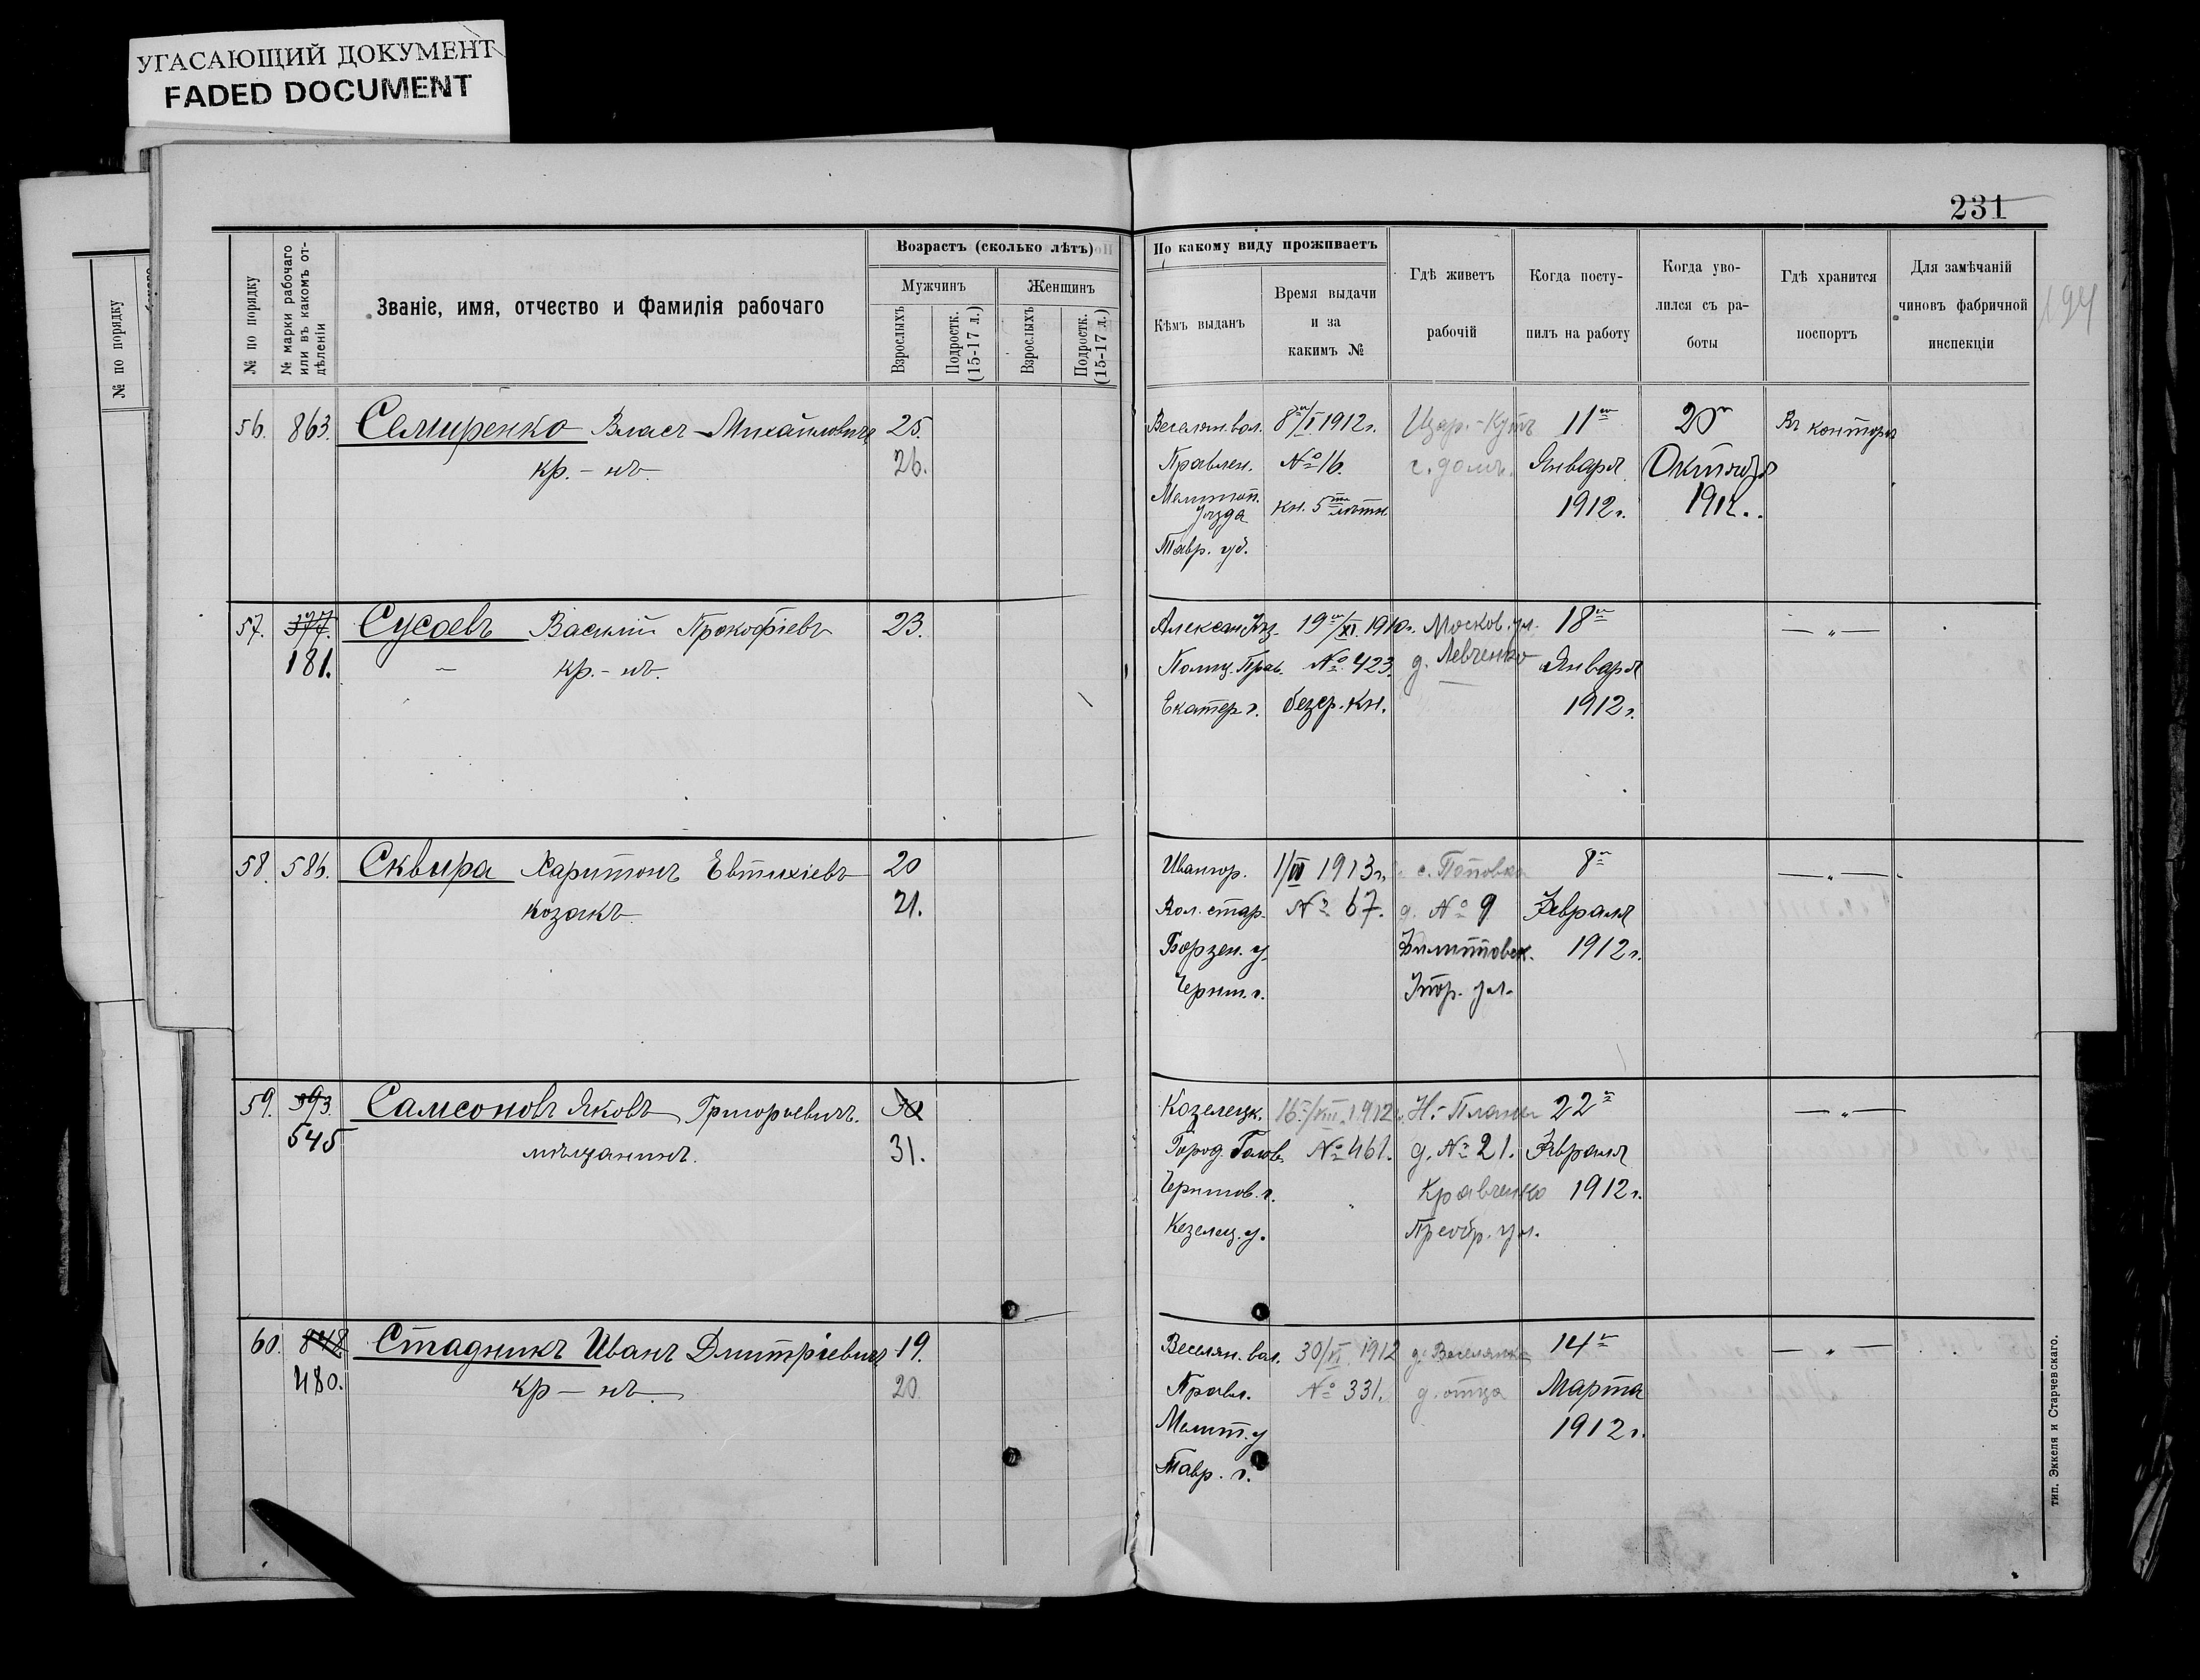 УГАСАЮЩИЙ ДОКУМЕНТ
FADED DOCUMENT
231
194
№ по порядку
№ по порядку
№ марки рабочаго или въ какомъ отдѣленіи
Званіе, имя, отчество и фамилія рабочаго
Возрастъ (сколько лѣтъ)
Мужчинъ
Женщинъ
Взрослыхъ
Подростк. (15-17 л.)
Взрослыхъ
Подростк. (15-17 л.)
По какому виду проживаетъ
Кѣмъ выданъ
Время выдачи и за какимъ №
Гдѣ живетъ рабочій
Когда поступилъ на работу
Когда уволился съ работы
Гдѣ хранится поспортъ
Для замѣчаній чиновъ фабричной инспекціи
56. 863. Семиренко Власъ Михайловичъ 25.
кр.-нъ. 26.
Веселян. вол. 8го/I 1912г. Цар.-Кутъ 11го 20го Въ конторѣ
Правлен. № 16. с. домъ. Января Октября
Мелитоп. Уѣзда кн. 5ти лѣтн. 1912г. 1912.
Тавр. губ.
57. 377. Сусоевъ Василій Прокофіевъ 23.
181. кр.-нъ.
19го/XI. 1910г. Москов. ул. 18го — „ —
Полиц. Прав. № 423. д. Левченко Января
Екатер. г. безср. кн. 1912г.
58. 586. Сквыра Харитонъ Евтихіевъ 20
козакъ 21.
Ивангор. 1/VI 1913г. с. Поповка 8го — „ —
Вол. стар. № 67. д. № 9 Февраля
Борзен. у. 1912г.
Черниг. г. ул.
59. 393. Самсоновъ Яковъ Григорьевичъ. 30
545 мѣщанинъ. 31.
Козелецк. 16го/VIII. 1912г. Н.-Планы 22го — „ —
Город. Голов. № 461. д. № 21. Февраля
Чернигов. г. Кравченко 1912г.
Козелец. у. Преобр. ул.
60. 848. Стадникъ Иванъ Дмитріевичъ 19.
480. кр-нъ. 20.
Веселян. вол. 30/VI 1912 д. Веселянка 14го — „ —
Правл. № 331. д. отца Марта
Мелит. у 1912г.
Тавр. г.
тип. Эккеля и Старчевскаго.